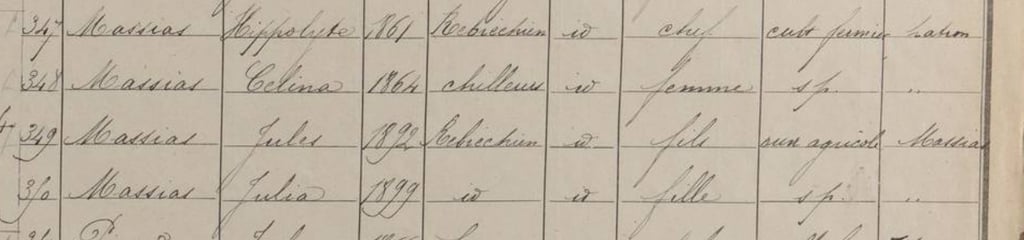 347 Massias Hippolyte 1861 Rebrechien id chef cult fermier patron
348 Massias Celina 1864 chilleurs id femme sp. "
349 Massias Jules 1892 Rebrechien id fils ouv agricole Massias
350 Massias Julia 1899 id id fille sp. "